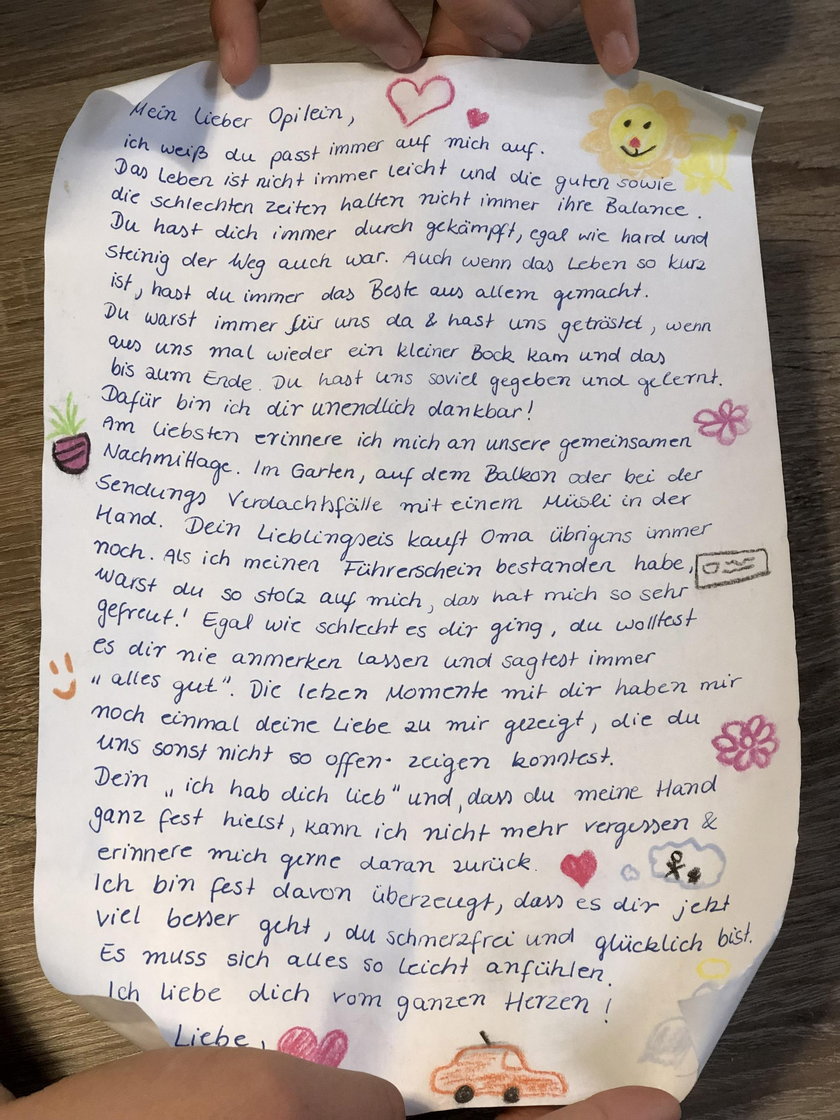 Mein lieber Opilein,
ich weiß du passt immer auf mich auf.
Das Leben ist nicht immer leicht und die guten sowie
die schlechten Zeiten halten nicht immer ihre Balance.
Du hast dich immer durch gekämpft, egal wie hard und
steinig der Weg auch war. Auch wenn das Leben so kurz
ist, hast du immer das Beste aus allem gemacht.
Du warst immer für uns da & hast uns getröstet, wenn
aus uns mal wieder ein kleiner Bock kam und das
bis zum Ende. Du hast uns soviel gegeben und gelernt.
Dafür bin ich dir unendlich dankbar!
Am liebsten erinnere ich mich an unsere gemeinsamen
Nachmittage. Im Garten, auf dem Balkon oder bei der
Sendungs Verdachtsfälle mit einem Müsli in der
Hand. Dein Lieblingseis kauft Oma übrigens immer
noch. Als ich meinen Führerschein bestanden habe,
warst du so stolz auf mich, das hat mich so sehr
gefreut! Egal wie schlecht es dir ging, du wolltest
es dir nie anmerken lassen und sagtest immer
„alles gut“. Die letzen Momente mit dir haben mir
noch einmal deine Liebe zu mir gezeigt, die du
uns sonst nicht so offen zeigen konntest.
Dein „ich hab dich lieb“ und, dass du meine Hand
ganz fest hielst, kann ich nicht mehr vergessen &
erinnere mich gerne daran zurück.
Ich bin fest davon überzeugt, dass es dir jetzt
viel besser geht, du schmerzfrei und glücklich bist.
Es muss sich alles so leicht anfühlen.
Ich liebe dich vom ganzen Herzen!
Liebe,